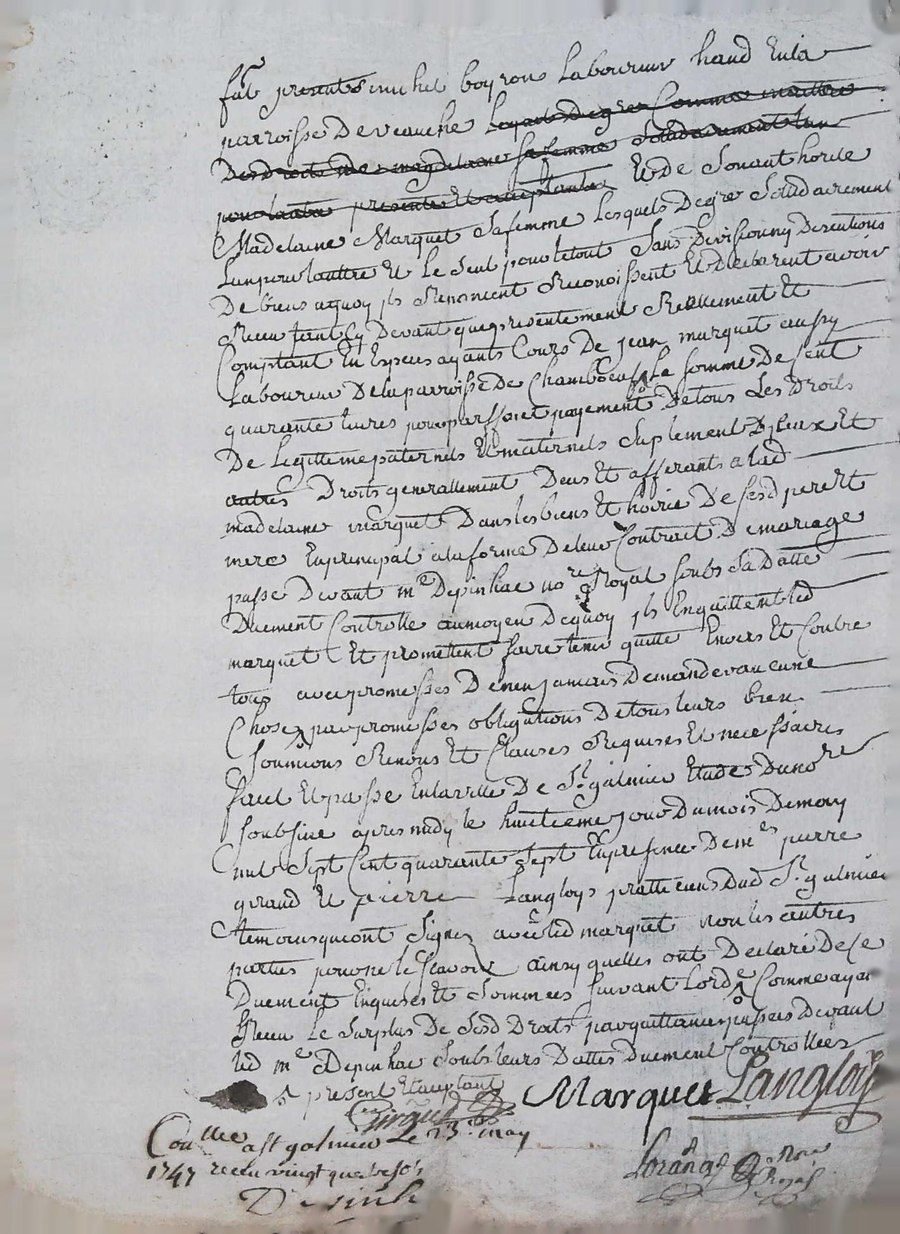 fut present michel boyron Laboureur habit Enla
parroisse De veauche Lequel De gré Comme maitre
Des droits de magdelaine sa femme solidairement lun
pour lautre presente Et acceptante Et de Son authorite
Madelaine Marquet Sa femme Lesquels De gré Solidairement
Lun pour lauttre Et Le Seul pour letout Sans Division ny Discutions
De biens aquoy ils Renoncent Reconoissent Et Declarent avoir
Receu tant Cy Devant que presentement Reellement Et
Comptant En Especes ayants Cours De jean marquet aussy
Laboureur Delaparroisse De Chambœuf La somme De Cent
quarante livres pour parfaict payement De tous Les Droits
De Legittime paternels Et maternels Suplement Diceux Et
autres Droits generallement Deus Et afferants a lad
madelaine marquet Dans les biens Et hoirie De sesd pere Et
mere En principal ala forme De leur Contrait De mariage
passe Devant mr Depinhac nore Royal soubs Sa Datte
Duement Controllé aumoyen Dequoy ils Enquittent led
marquet Et promettent faire tenir quitte Envers Et Contre
tous avec promesses De nen jamais Demander aucune
Chose par promesses obligations De tous leurs bien
Soumions Renons Et Clauses Requises Et necessaires
faict Et passé Enlaville De St galmier Etude Du nore
soubsiné apres midy le huitieme jour Du mois De may
mil Sept Cent quarante Sept En presence De mes pierre
giraud Et pierre Langloys pratticiens Dud St galmier
temoins qui ont Signez avec led marquet non les autres
parties pour ne le scavoir ainsy quelles ont Declaré De ce
Duement Enquises Et Sommées suivant Lordce Comme ayant
Receu Le Surplus De Sesd Droits par quittances passées Devant
led mr Depinhac Soubs leurs Dattes Duement Controllées
present Et acceptant
Giraud Marquet Langloys
Conllee a St galmier Le 23e may
1747 receu vingt quatre sols
Lorang Nore Royal